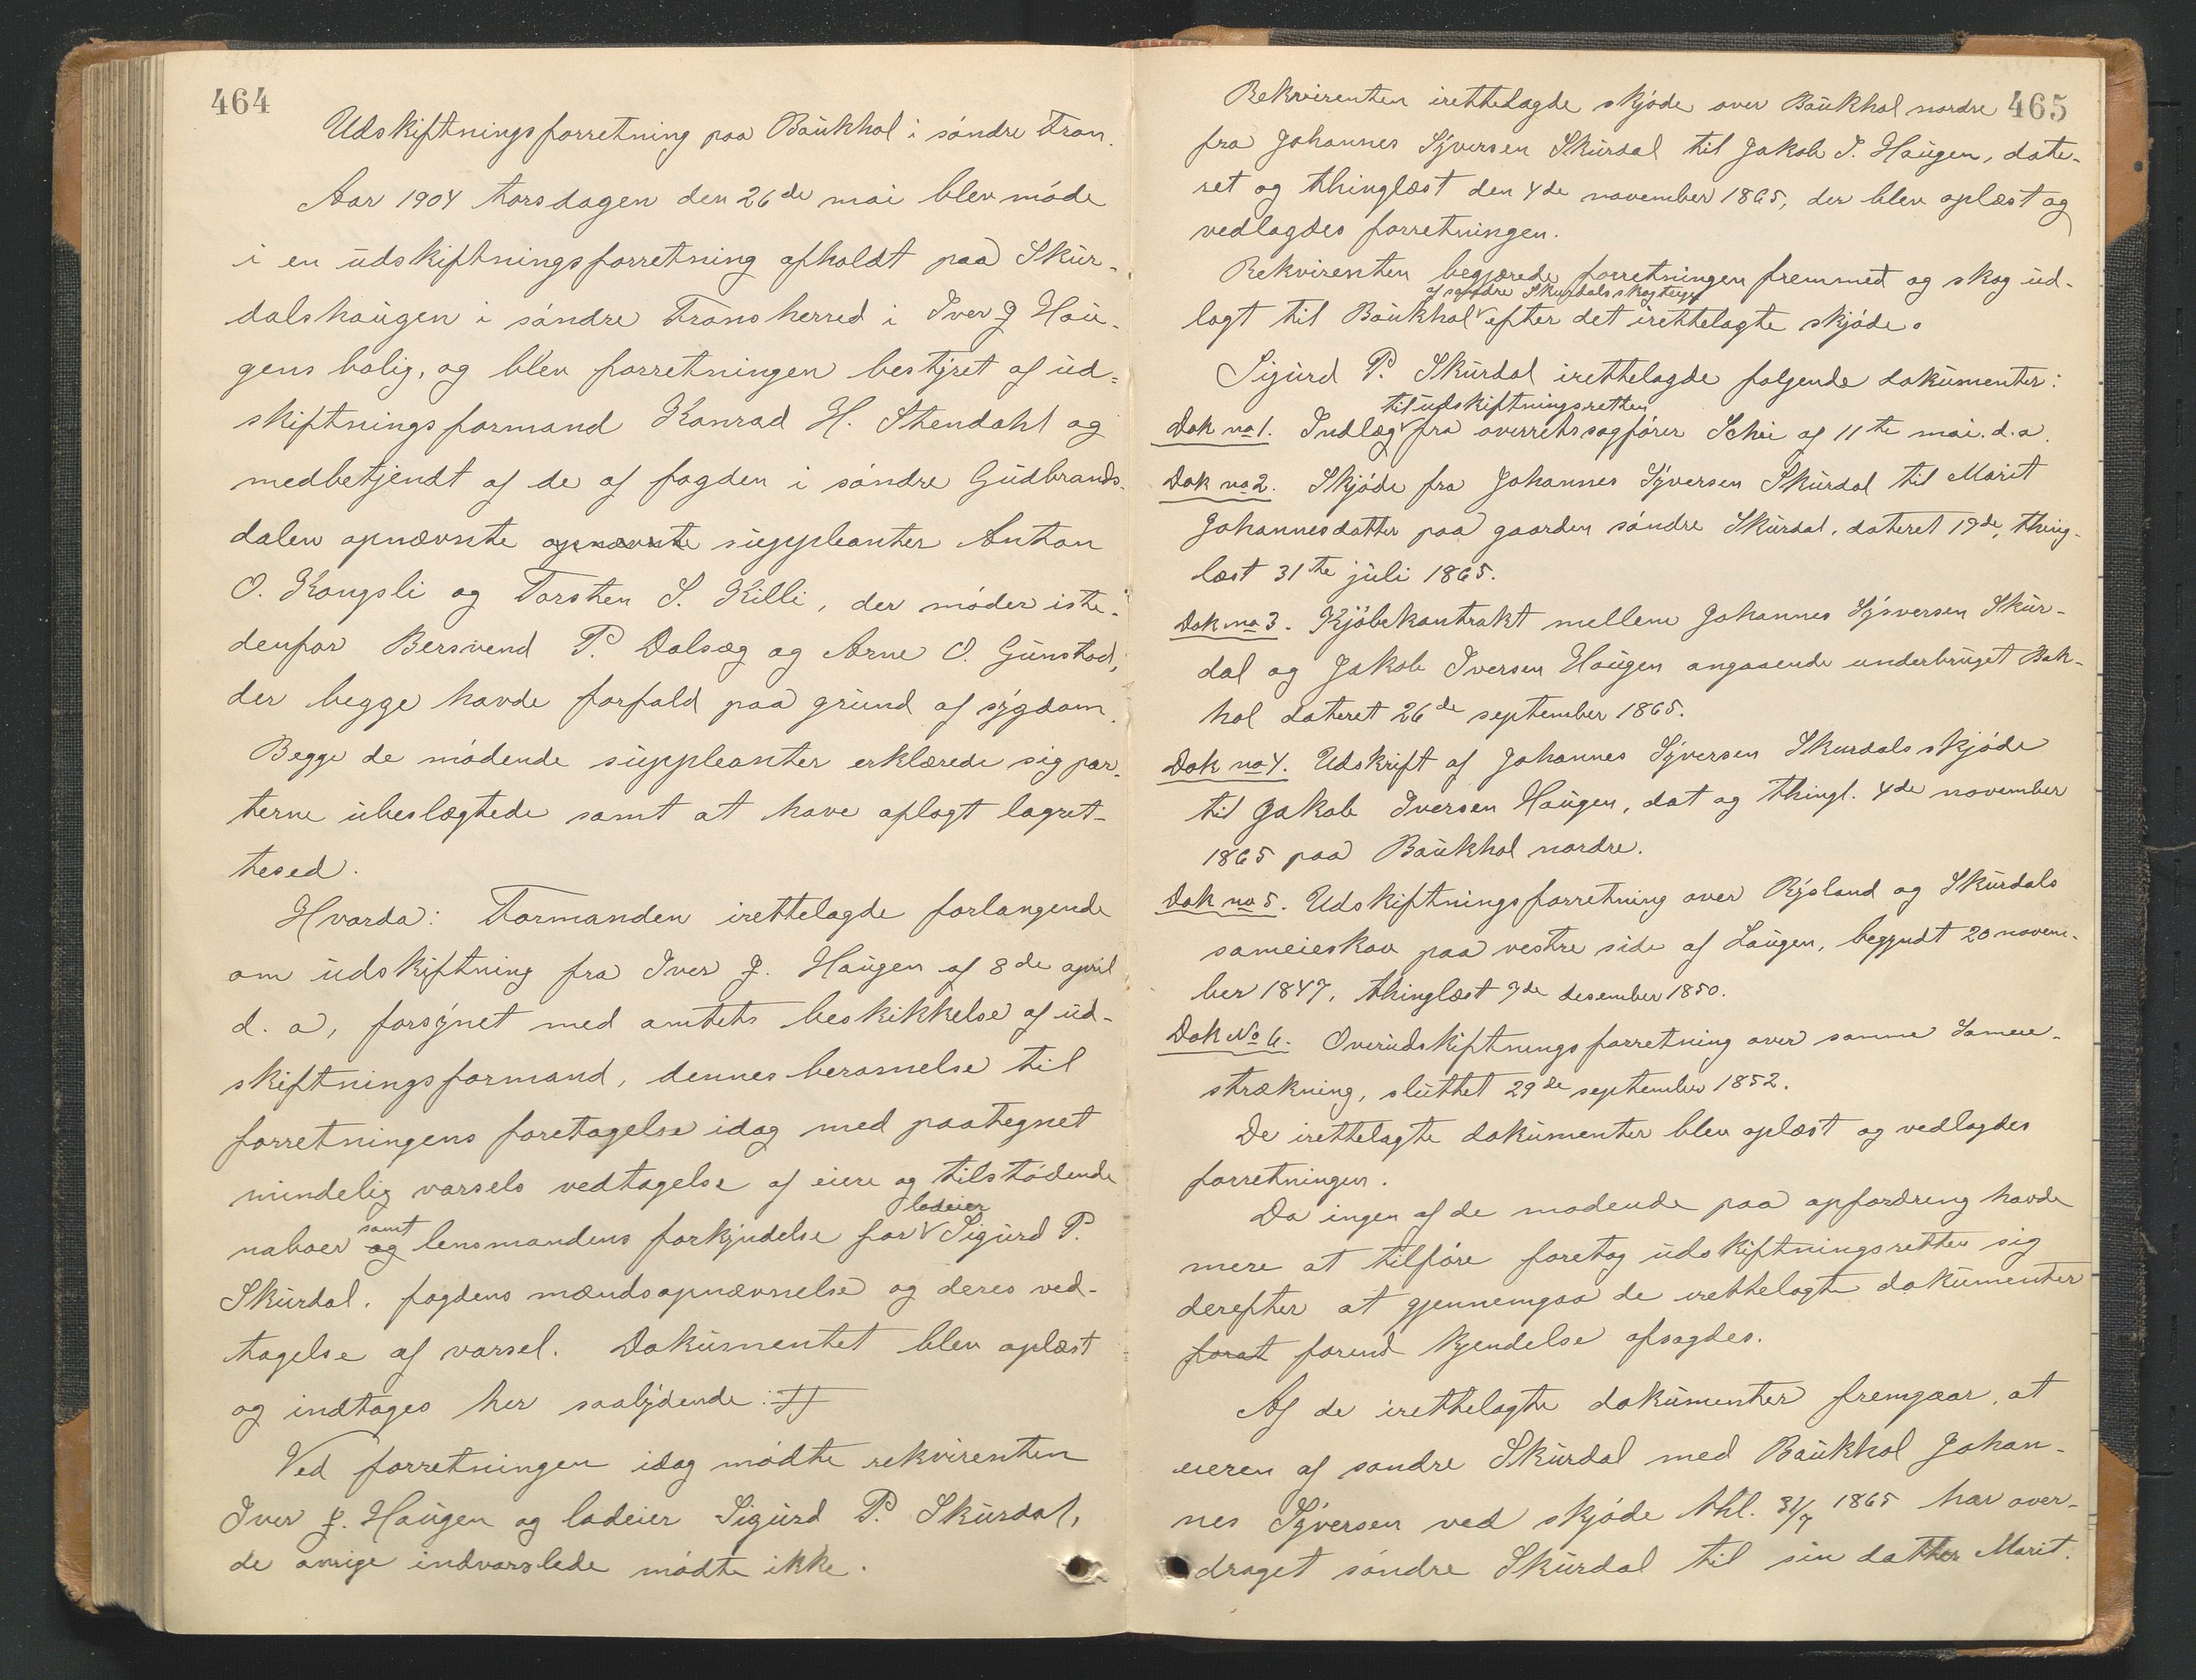 464
Udskiftningsforretning paa Baukhol i søndre Fron.
Aar 1904 torsdagen den 26de mai blev møde
i en udskiftningsforretning afholdt paa Skur-
dalshaugen i søndre Frons herred i Iver J Hau-
gens bolig, og blev forretningen bestyret af ud-
skiftningsformand Konrad H. Stendahl og
medbetjendt af de af fogden i søndre Gudbrands-
dalen opnævnte opnævnte suppleanter Anton
O. Kongsli og Torsten S. Killi, der møder iste-
denfor Bersvend P. Dalsæg og Arne O. Gunstad,
der begge havde forfald paa grund af sygdom.
Begge de mødende suppleanter erklærede sig par-
terne ubeslægtede samt at have aflagt lagret-
tesed.
Hvorda: Formanden irettelagde forlangende
om udskiftning fra Iver J. Haugen af 8de april
d. a, forsynet med amtets beskikkelse af ud-
skiftningsformand, dennes beramelse til
forretningens foretagelse idag med paategnet
mindelig varsels vedtagelse af eiere og tilstødende
naboer og samt lensmandens forkyndelse for lodeier Sigurd P.
Skurdal, fogdens mændsopnævnelse og deres ved-
tagelse af varsel. Dokumentet blev oplæst
og indtages her saalydende: #
Ved forretningen idag mødte rekvirenten
Iver J. Haugen og lodeier Sigurd P. Skurdal,
de øvrige indvarslede mødte ikke.
465
Rekvirenten irettelagde skjøde over Baukhol nordre
fra Johannes Syversen Skurdal til Jakob I. Haugen, date-
ret og thinglæst den 4de november 1865, der blev oplæst og
vedlagdes forretningen.
Rekvirenten begjærede forretningen fremmed og skog ud-
af søndre Skurdals skogteig
lagt til Baukhol efter det irettelagte skjøde.
Sigurd P. Skurdal irettelagde følgende dokumenter:
til udskiftningsretten
Dok no 1. Indlæg fra overretssagfører Schei af 11te mai. d. a.
Dok no 2. Skjøde fra Johannes Syversen Skurdal til Marit
Johannesdatter paa gaarden søndre Skurdal, dateret 17de, thing-
læst 31te juli 1865.
Dok no 3. Kjøbekontrakt mellem Johannes Syversen Skur-
dal og Jakob Iversen Haugen angaaende underbruget Bak-
hol dateret 26de september 1865.
Dok no 4. Udskrift af Johannes Syversen Skurdals skjøde
til Jakob Iversen Haugen, dat og thingl. 4de november
1865 paa Baukhol nordre.
Dok no 5. Udskiftningsforretning over Rysland og Skurdals
sameieskov paa vestre side af Laugen, begyndt 20 novem-
ber 1847, thinglæst 7de desember 1850.
Dok No 6. Overudskiftningsforretning over samme Sameie-
strækning, sluttet 29de september 1852.
De irettelagte dokumenter blev oplæst og vedlagdes
forretningen.
Da ingen af de mødende paa opfordring havde
mere at tilføre foretog udskiftningsretten sig
derefter at gjennemgaa de irettelagte dokumenter
forat forend kjendelse afsagdes.
Af de irettelagte dokumenter fremgaar, at
eieren af søndre Skurdal med Baukhol Johan-
nes Syversen ved skjøde thl. 31/7 1865 har over-
draget søndre Skurdal til sin datter Marit.